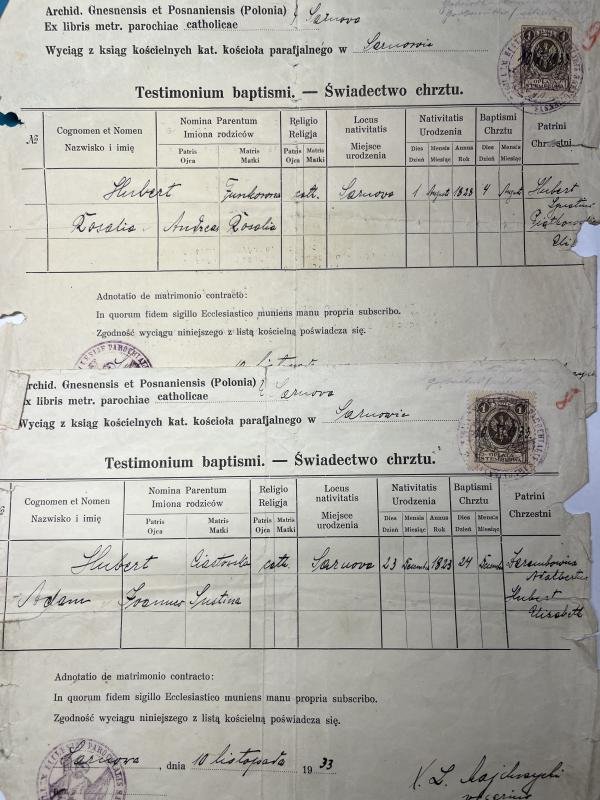 Archid. Gnesnensis et Posnaniensis (Polonia)
Ex libris metr. parochiae catholicae } Sarnova
Wyciąg z ksiąg kościelnych kat. kościoła parafjalnego w Sarnowie
Testimonium baptismi. — Świadectwo chrztu.
№ Cognomen et Nomen Nomina Parentum Religio Locus Nativitatis Baptismi Patrini
Nazwisko i imię Imiona rodziców Religja nativitatis Urodzenia Chrztu Chrzestni
Patris Matris Patris Matris Miejsce Dies Mensis Annus Dies Mensis
Ojca Matki Ojca Matki urodzenia Dzień Miesiąc Rok Dzień Miesiąc
Hubert cath. Sarnova 1 August 1828 4 August Hubert
Rosalia Andreas Rosalia
Adnotatio de matrimonio contracto:
In quorum fidem sigillo Ecclesiastico muniens manu propria subscribo.
Zgodność wyciągu niniejszego z listą kościelną poświadcza się.
10 listopada
Archid. Gnesnensis et Posnaniensis (Polonia)
Ex libris metr. parochiae catholicae } Sarnova
Wyciąg z ksiąg kościelnych kat. kościoła parafjalnego w Sarnowie
Testimonium baptismi. — Świadectwo chrztu.
Cognomen et Nomen Nomina Parentum Religio Locus Nativitatis Baptismi Patrini
Nazwisko i imię Imiona rodziców Religja nativitatis Urodzenia Chrztu Chrzestni
Patris Matris Patris Matris Miejsce Dies Mensis Annus Dies Mensis
Ojca Matki Ojca Matki urodzenia Dzień Miesiąc Rok Dzień Miesiąc
Hubert cath. Sarnova 23 Decemb 1823 24 Decemb
Adalbertus
Adam Joannes Justina Hubert
Elisabeth
Adnotatio de matrimonio contracto:
In quorum fidem sigillo Ecclesiastico muniens manu propria subscribo.
Zgodność wyciągu niniejszego z listą kościelną poświadcza się.
Sarnova, dnia 10 listopada 1933